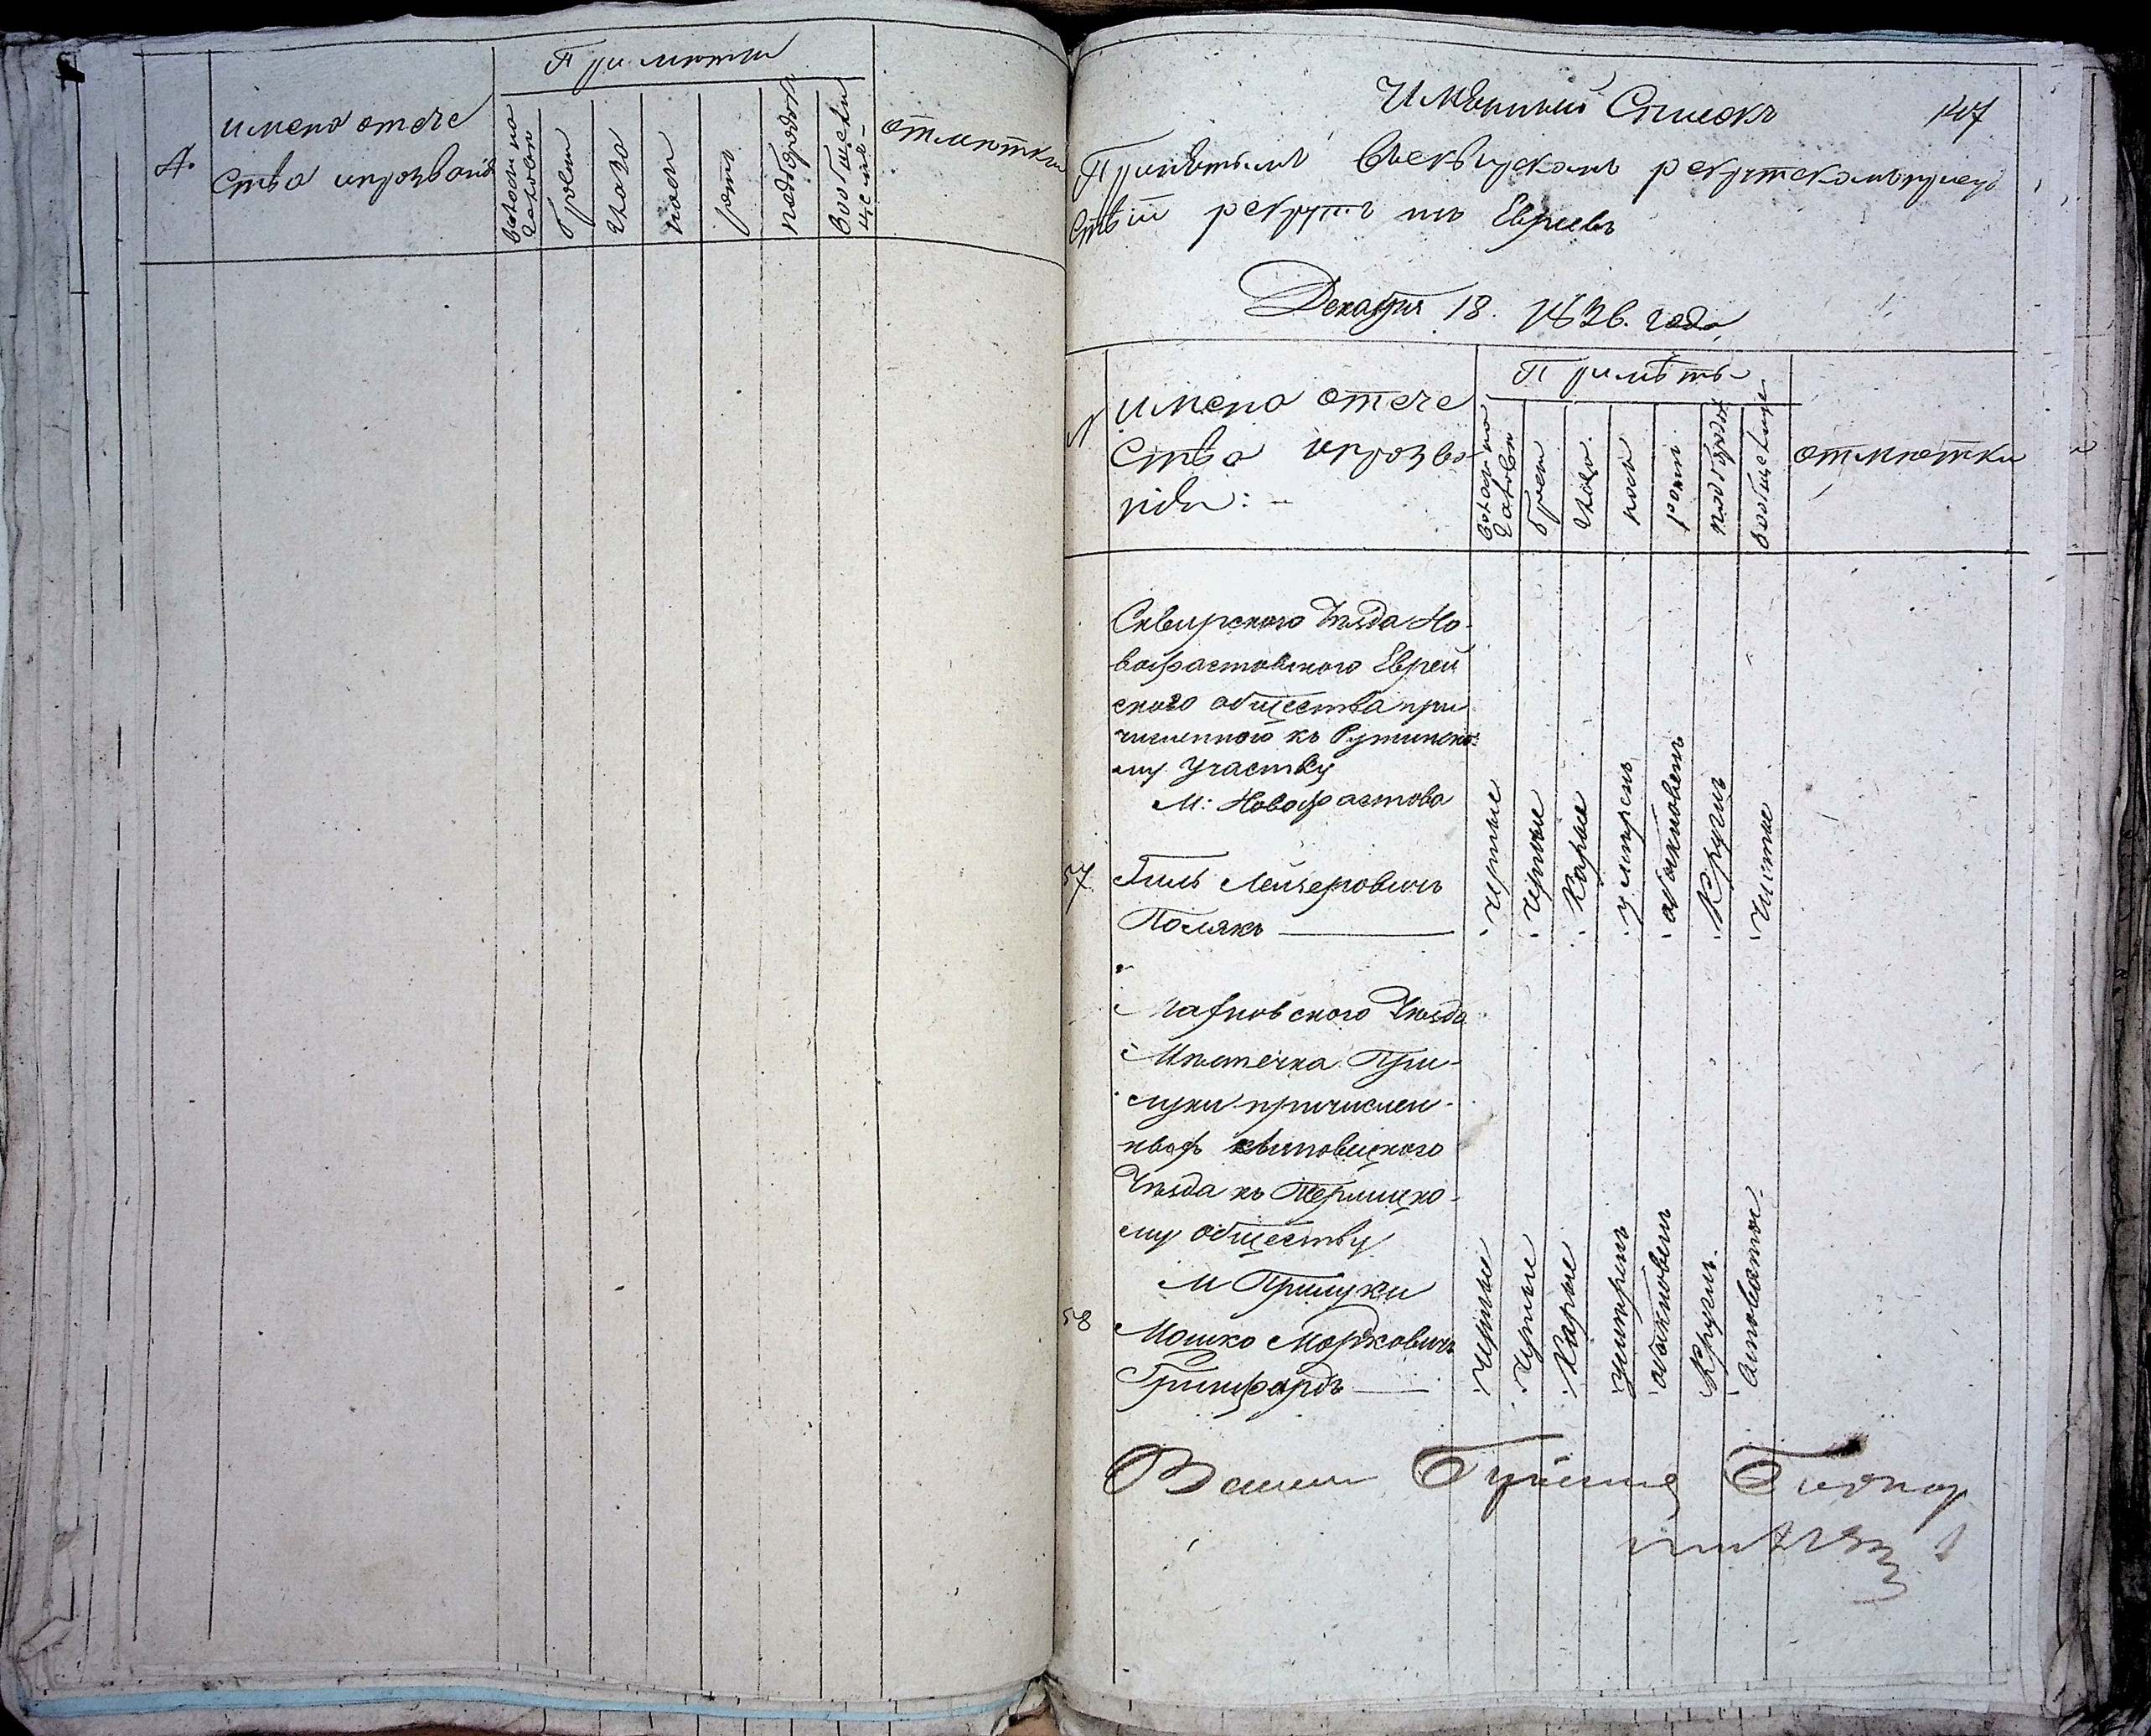 Примѣты
№
имена отече
ства ипрозваній
волосы на
головѣ
брови
глаза
носъ
ротъ
подбородокъ
вообще
отмѣтки
147
Имѣнный Списокъ
Принятымъ рекрутскомъ
ствіи рекрутъ изъ Евреевъ
Декабря 18. 1836. года
№
имена отече
ства ипрозва
нія: -
Примѣты
волосы на
головѣ
брови
глаза
носъ
ротъ
подбородокъ
вообще лице
отмѣтки
Сквирского Уѣзда Но-
вофастовского Еврей
ского общества при
численного къ Ружинско-
му участку
М: Новофастова
57 Гиль Лейзеровичъ
Полякъ
Черные
Черные
Карые
умѣренъ
обыкновенъ
Круглъ
Чистое
Махновского Уѣзда
Мѣстечка При-
луки причислен-
ныхъ Липовецкого
Уѣзда къ
му обществу
М Прилуки
58 Мошко Мордковичъ
Гринфардъ
Черные
Черные
Карые
умѣренъ
обыкновенъ
Круглъ